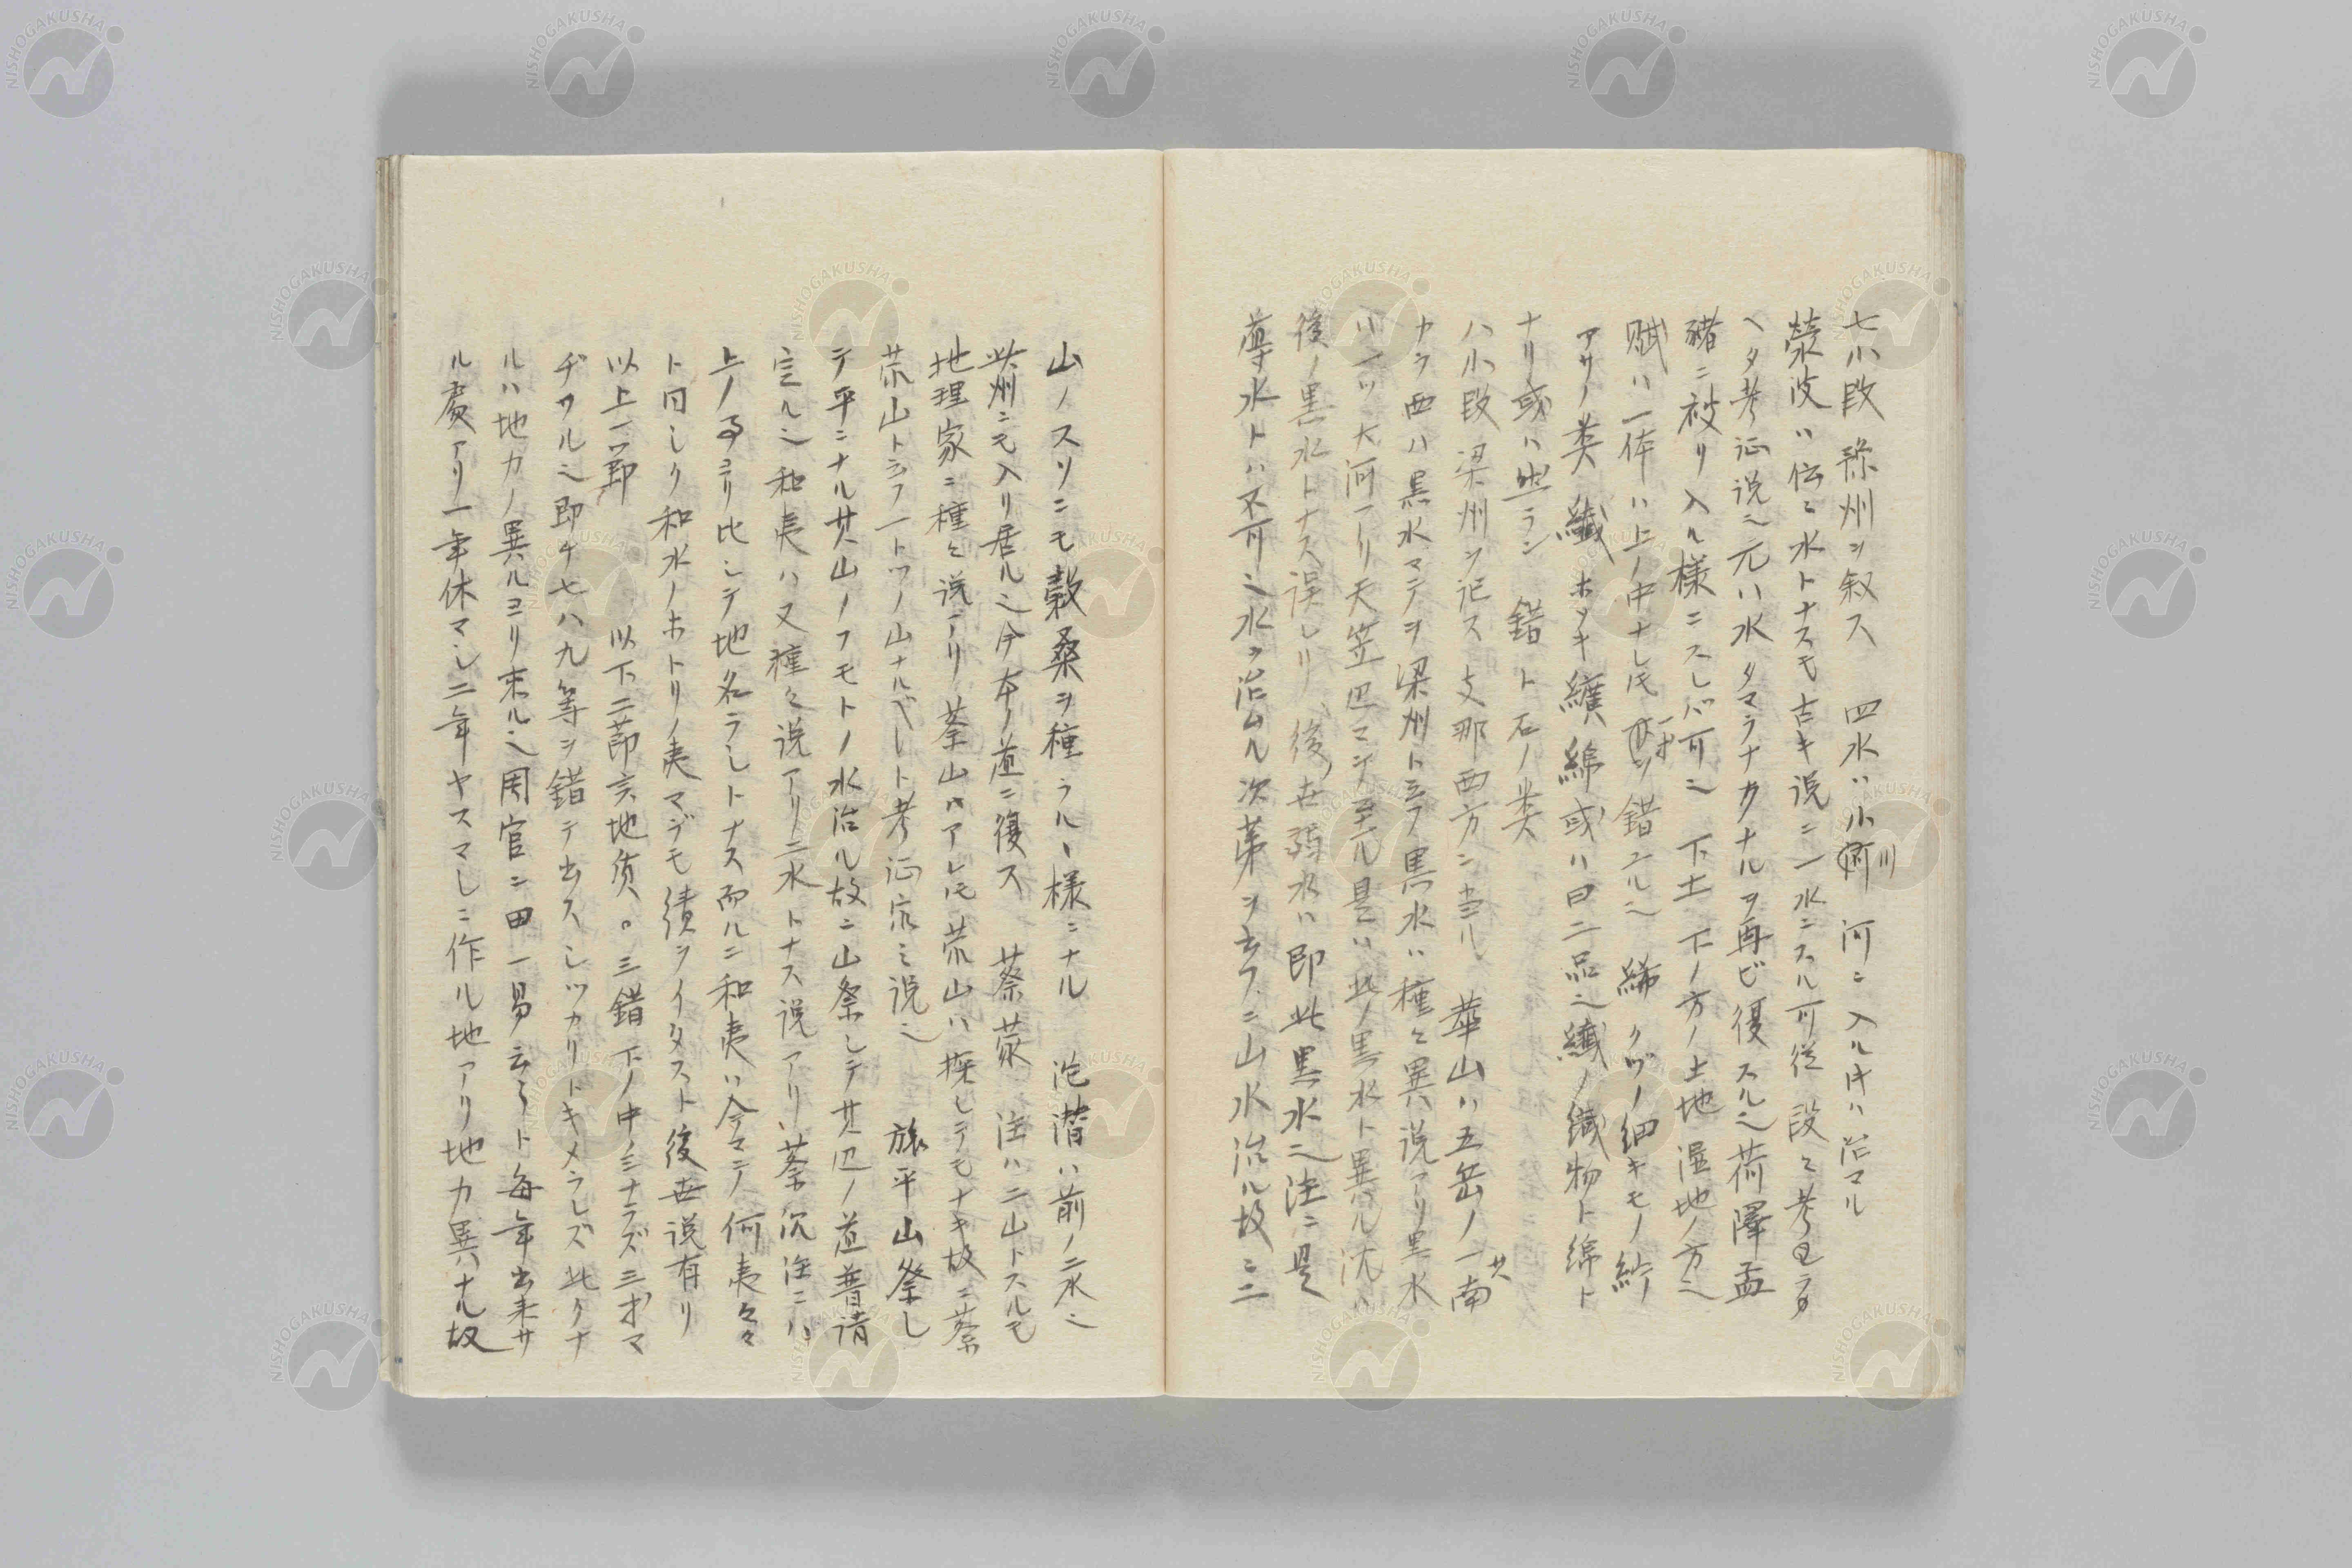 七小段豫州ヲ叙ス 四水ハ小川河ニ入ルキハ治マル
滎波ハ伝ミ水トナスモ古キ説ニ一水ニスル可従段々考
ヘタ考証説也元ハ水タマラナカナルヲ再ビ復スル也荷澤孟
豬ニ被リ入ル様ニスレバ可也 下土下ノ方ノ土地湿地ノ方也
賦ハ一体ハ上ノ中ナレ𪜈 錯ユル也 絺クヅノ細キモノ紵
アサノ類 纖ホソキ纊綿或ハ曰二品也纖ノ織物ト綿ト
ナリ或ハ然ラン 錯ト石ノ类
八小段梁州ヲ記ス 支那西方ニ当ル 華山ハ五岳ノ一其南
カラ西ハ黒水マデヲ梁州ト云フ黒水ハ種々異ハ説アリ黒水
ハ一ツ大河アリ天竺辺マデ至ル是ハ此ノ黒水ト異ハル沈ハ
後ノ黒水トナス誤レリ 後世弱水ハ即此黒水也注ニ是
導水トハ不可也水ヲ治ムル次第ヲ云フニ山水治ル故ニ二
山ノスソニモ穀桑ヲ種ラルヽ様ニナル 沱潜ハ前ノ二水也
此州ニモ入リ居ル也今本ノ道ニ復ス 蔡蒙 注ハ二山トスルモ
地理家ニ種々説アリ 蔡山ハアレ𪜈荒山ハ探シテモナキ故ニ蔡
荒山ト云フ一トツノ山ナルベレト考証家ミ説也 旅平山祭シ
テ平ニナル其山ノフモトノ水治ル故ニ山祭シテ其辺ノ道普請
定ル也和夷ハ又種々説アリ二水トナス説アリ蔡沈注ニハ
上ノヿヨリ比シテ地名ラシトナス而ルニ和夷ハ今マデ何夷々々
ト同シク和水ノホトリノ夷マデモ績ヲイタスト後世説有リ
以上一節 以下二節言地質。三錯下ノ中ノミナラズ三才マ
ヂワル也即チ七八九等ヲ錯テ出スシツカリトキメラレズ此クナ
ルハ地力ノ異ルヨリ来ル也周官ニ田一易云々ト毎年出来サ
ル処アリ一年休マシ二年ヤスマシニ作ル地アリ地力異ナル故